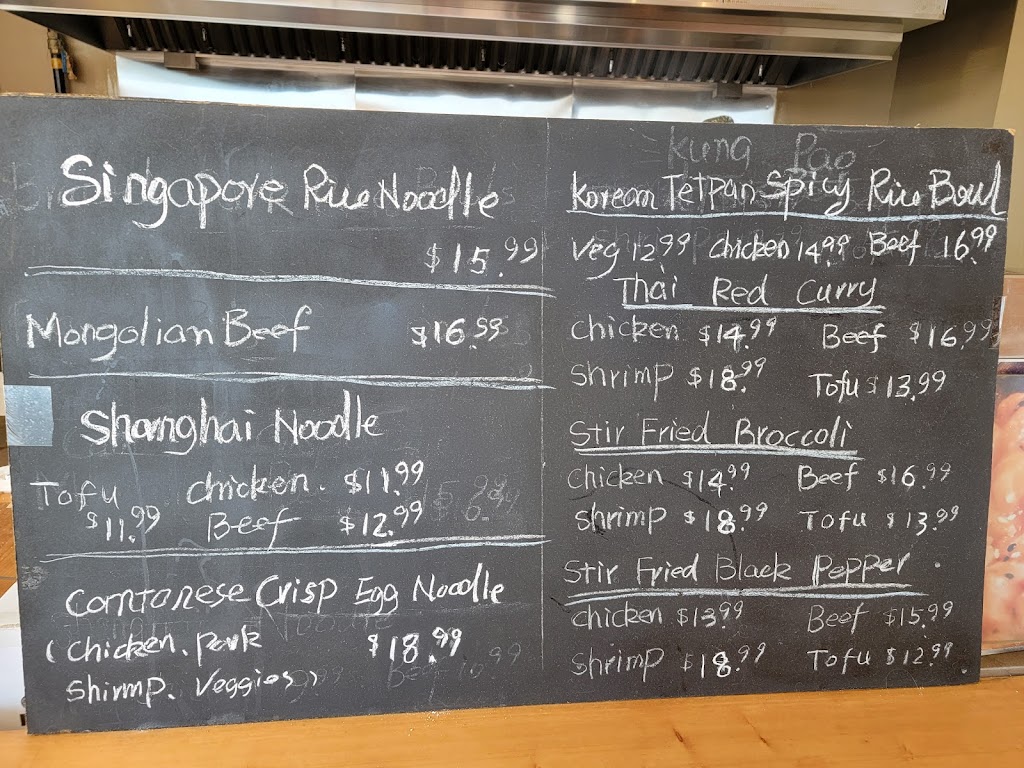 Singapore Rice Noodle
$15.99
Mongolian Beef $16.99
Shanghai Noodle
Tofu chicken. $11.99
$11.99 Beef $12.99
Contonese Crisp Egg Noodle
(chicken. pork $18.99
Shirmp. Veggies)
Kung Pao
Korean Tetpan Spicy Rice Bowl
Veg 12.99 chicken 14.99 Beef 16.99
Thai Red Curry
chicken $14.99 Beef $16.99
Shrimp $18.99 Tofu $13.99
Stir Fried Broccoli
chicken $14.99 Beef $16.99
Shrimp $18.99 Tofu $13.99
Stir Fried Black Pepper
chicken $13.99 Beef $15.99
Shrimp $18.99 Tofu $12.99